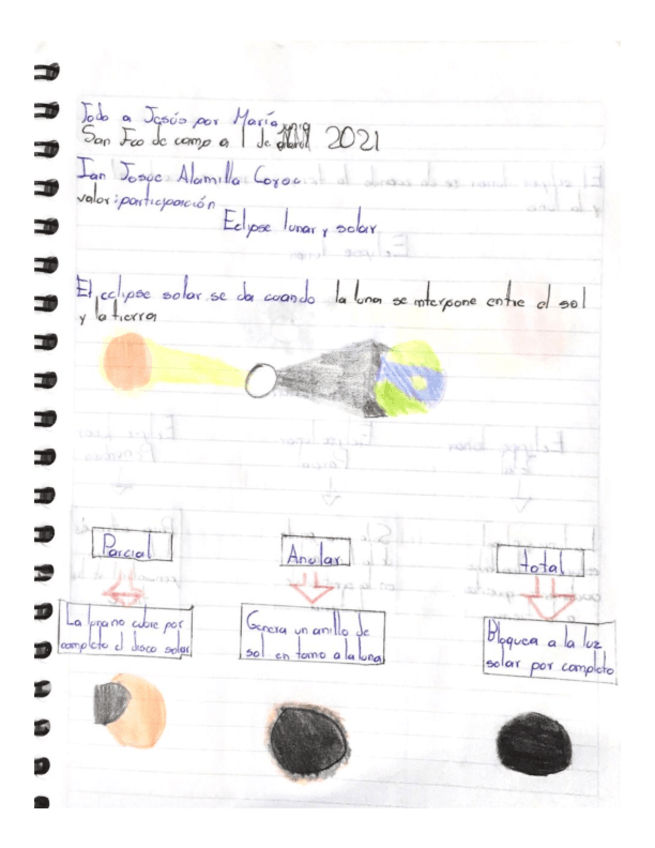 Todo a Jesús por María
San Fco de campo a 1 de 2021
Ian Josue Alamilla Coroc
valor: participación
Eclipse lunar y solar
El eclipse solar se da cuando la luna se interpone entre el sol
y la tierra
Parcial
Anular
total
La luna no cubre por
completo el disco solar
Genera un anillo de
sol en torno a la luna
Bloquea a la luz
solar por completo